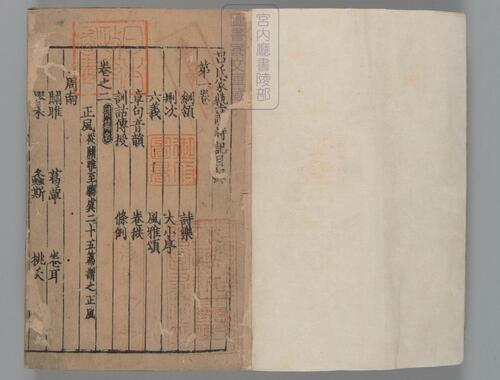 宮内廳書陵部
圖書寮文庫
呂氏家塾讀詩記目錄
第一卷
綱領 詩樂
刪次 大小序
六義 風雅頌
章句音韻 卷袟
訓詁傳授 條例
卷之二
正風從關雎至騶虞二十五篇謂之正風
周南
關雎 葛覃 卷耳
樛木 螽斯 桃夭